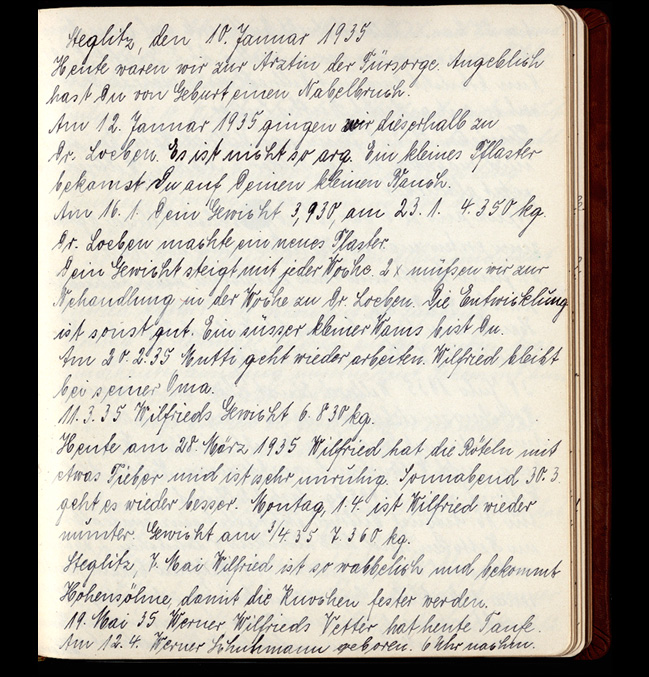 Steglitz, den 10. Januar 1935
Heute waren wir zur Ärztin der Fürsorge. Angeblich
hast Du von Geburt einen Nabelbruch.
Am 12. Januar 1935 gingen wir dieserhalb zu
Dr. Loeben. Es ist nicht so arg. Ein kleines Pflaster
bekamst Du auf Deinen kleinen Bauch.
Am 16.1. Dein Gewicht 3,930, am 23.1. 4.350 kg
Dr. Loeben machte ein neues Pflaster
Dein Gewicht steigt mit jeder Woche. 2 x müßen wir zur
Behandlung in der Woche zu Dr. Loeben. Die Entwicklung
ist sonst gut. Ein süsser kleiner Wams bist Du.
Am 20.2.35 Mutti geht wieder arbeiten. Wilfried bleibt
bei seiner Oma.
11.3.35 Wilfrieds Gewicht 6.830 kg.
Heute am 28. März 1935 Wilfried hat die Röteln mit
etwas Fieber und ist sehr unruhig. Sonnabend 30.3.
geht es wieder besser. Montag, 1.4. ist Wilfried wieder
munter. Gewicht am 3/4 35 7.360 kg.
Steglitz, 7. Mai Wilfried ist so wabbelich und bekommt
Höhensöhne, damit die Knochen fester werden.
19. Mai 35 Werner Wilfrieds Vetter hat heute Taufe.
Am 12.4. Werner Schuhmann geboren. 6 Uhr nachm.